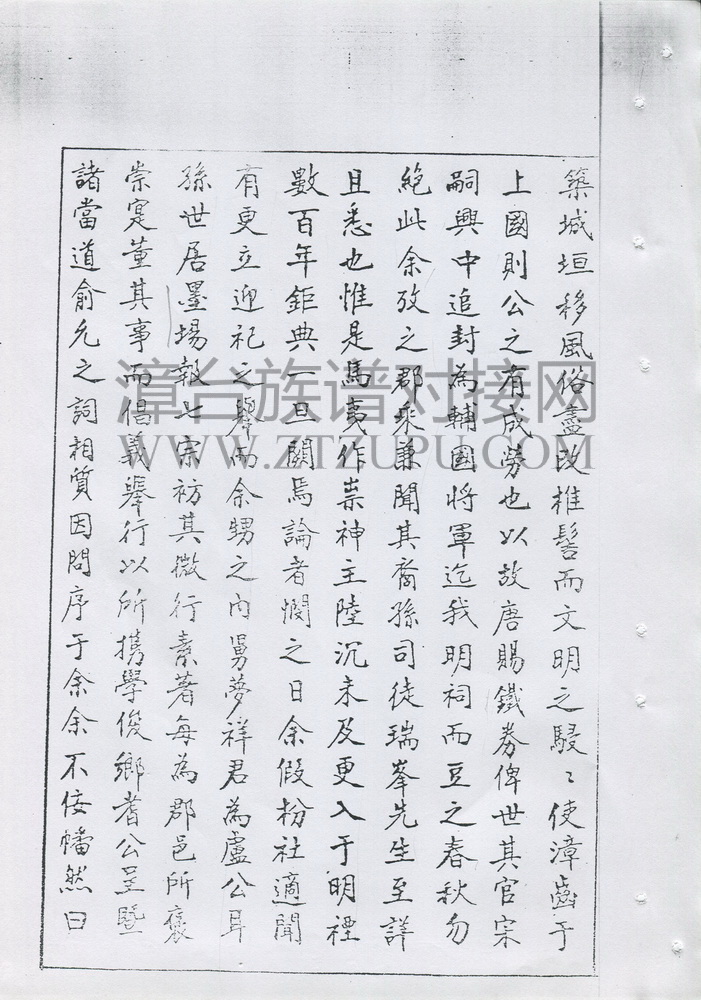 築城垣移風俗盡改椎髻而文明之駸〻使漳齒于
上國則公之有成勞也以故唐賜鐵券俾世其官宋
嗣興中追封為輔國將軍迄我明祠而豆之春秋勿
絕此余攷之郡乘兼聞其裔孫司徒瑞峯先生至詳
且悉也惟是馬夷作祟神主陸沉未及更入于明禋
數百年鉅典一旦闕焉論者憫之日余假枌社適聞
有更立迎祀之舉而余甥之內舅夢祥君為盧公耳
孫世居墨場報七宗祊其微行素著每為郡邑所褒
崇寔董其事而倡義舉行以所携學俊鄉耆公呈暨
諸當道俞允之詞相質因問序于余余不佞幡然曰
漳台族谱对接网
WWW.ZTZUPU.COM